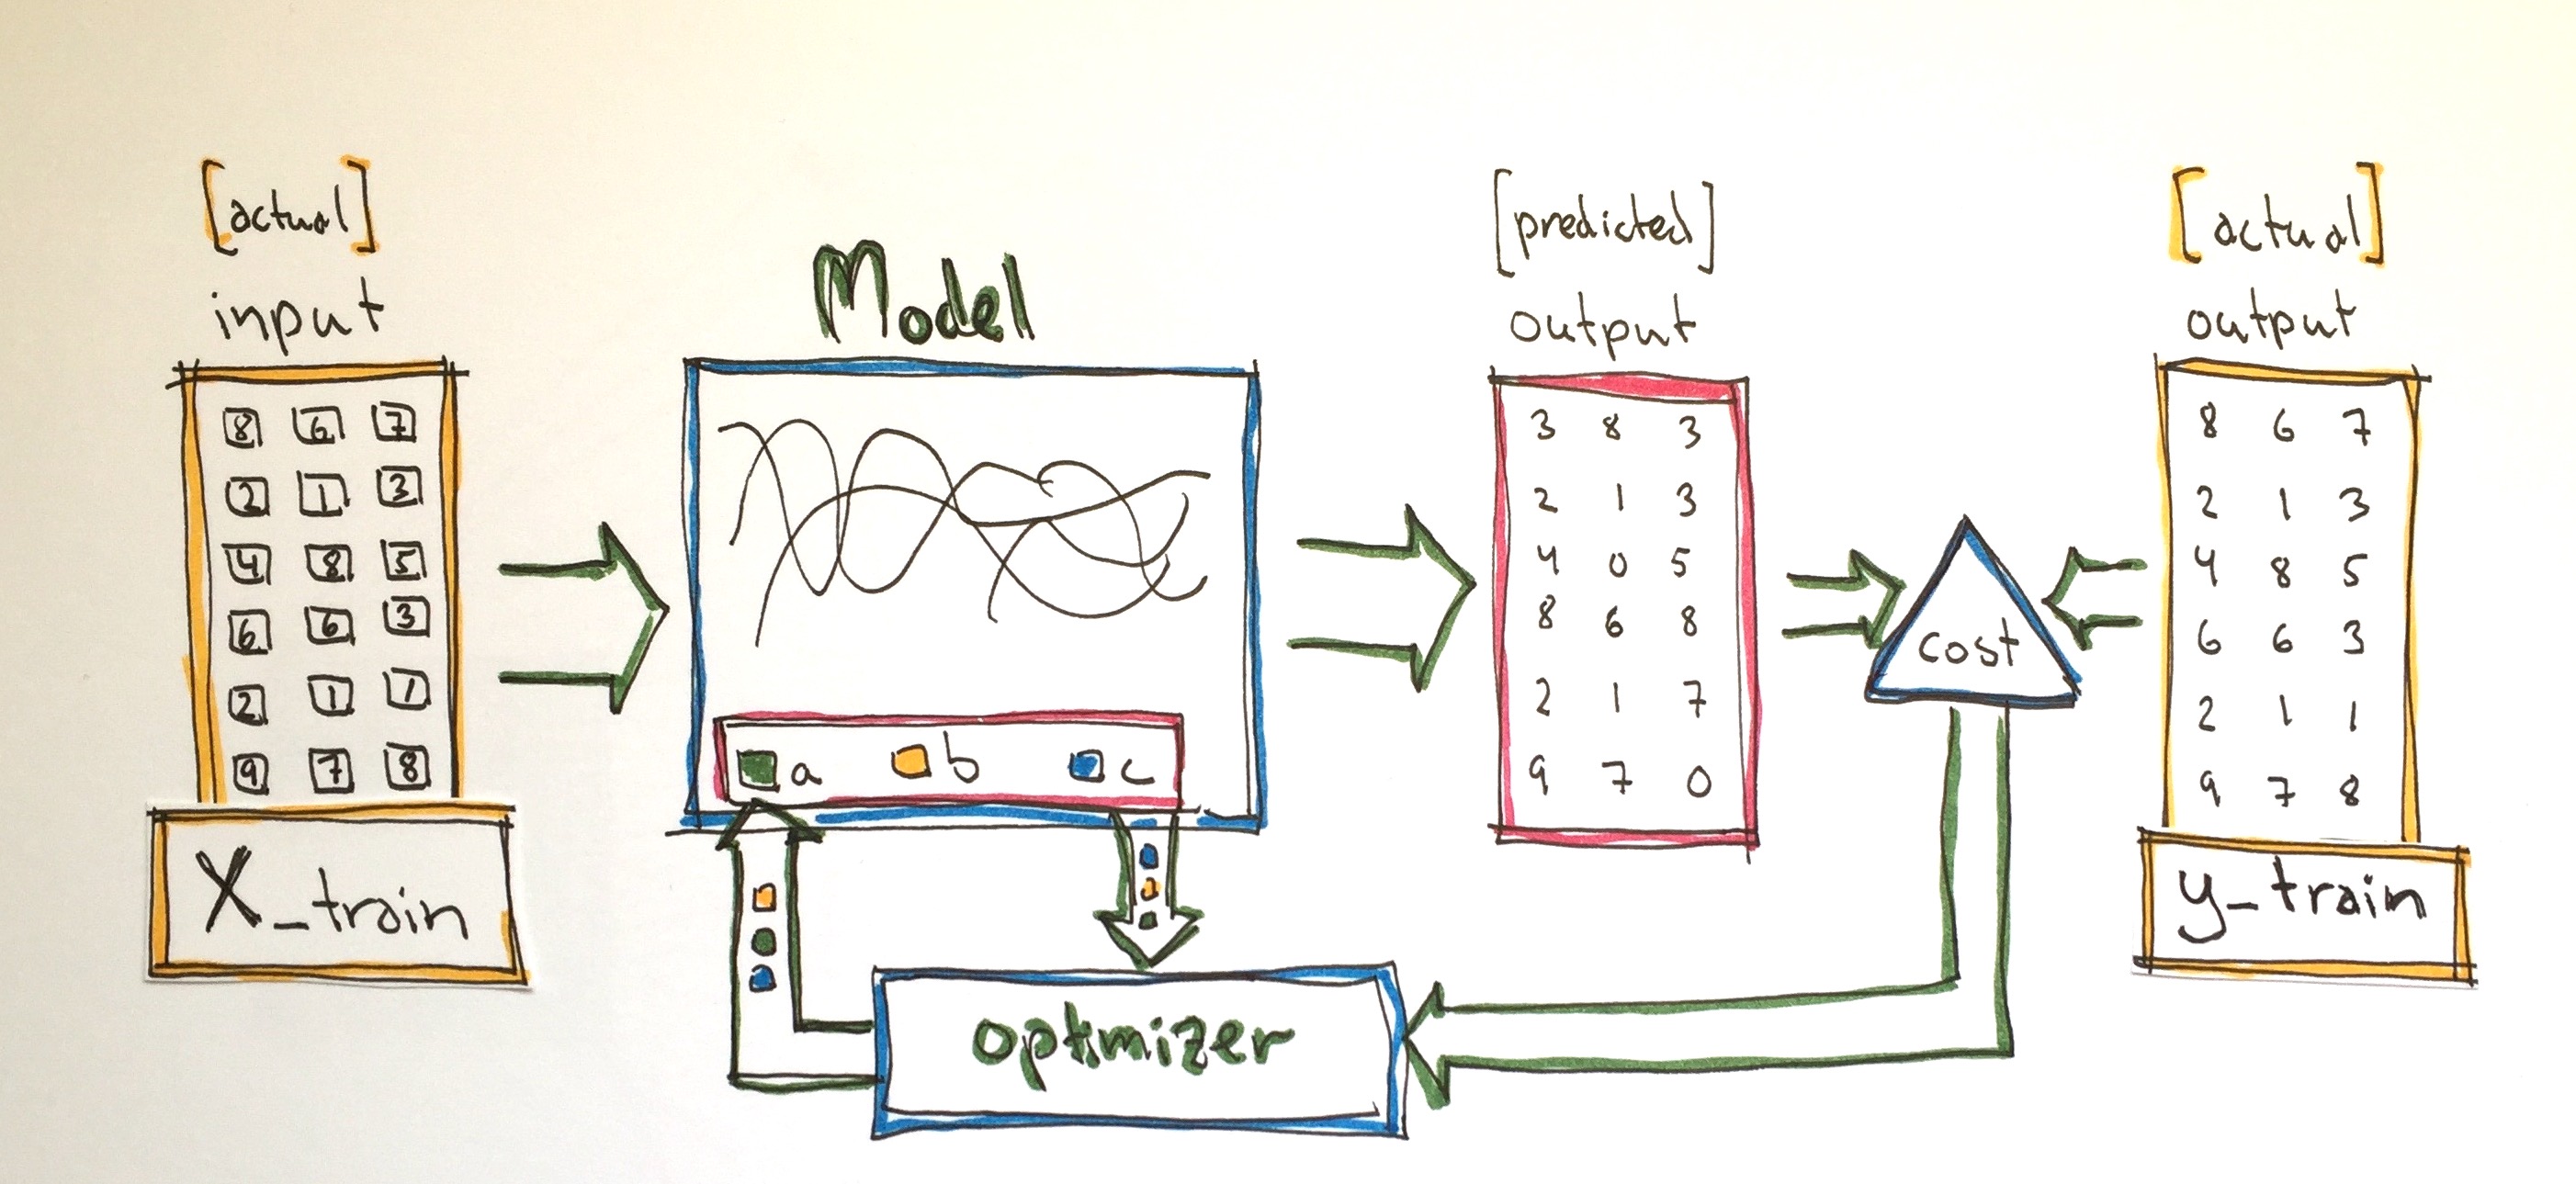 [actual]
input
8 6 7
2 1 3
4 8 5
6 6 3
2 1 1
9 7 8
X_train
Model
a b c
optimizer
[predicted]
output
3 8 3
2 1 3
4 0 5
8 6 8
2 1 7
9 7 0
cost
[actual]
output
8 6 7
2 1 3
4 8 5
6 6 3
2 1 1
9 7 8
y_train